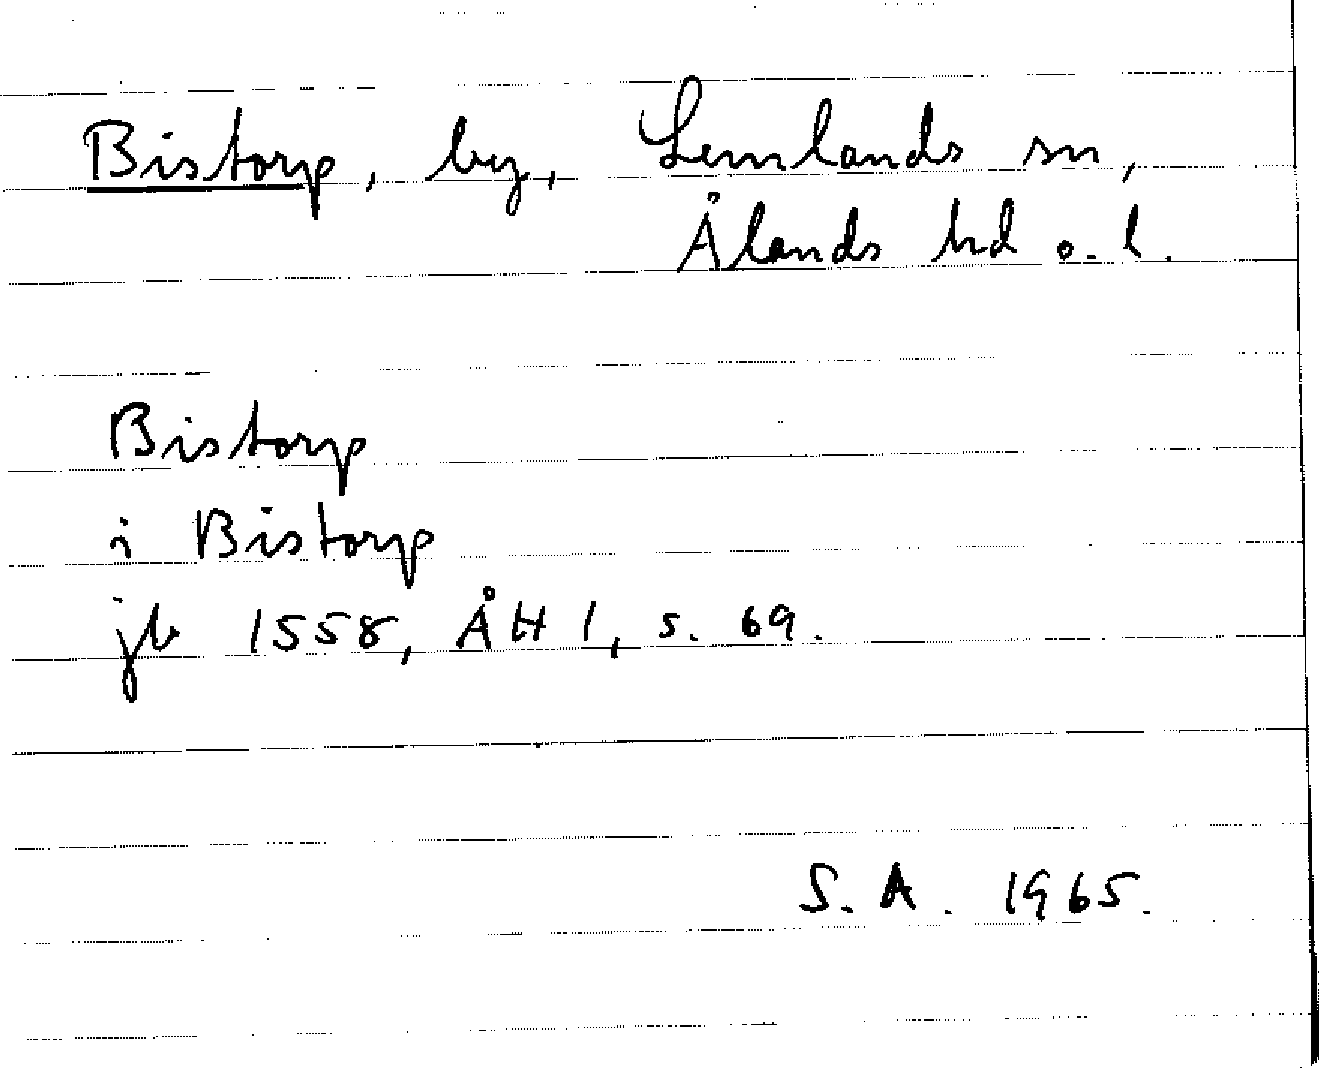 Bistorp, by, Lemlands sn,
Ålands hd o. l.
Bistorp
i Bistorp
jb 1558, ÅH 1, s. 69.
S. A. 1965.